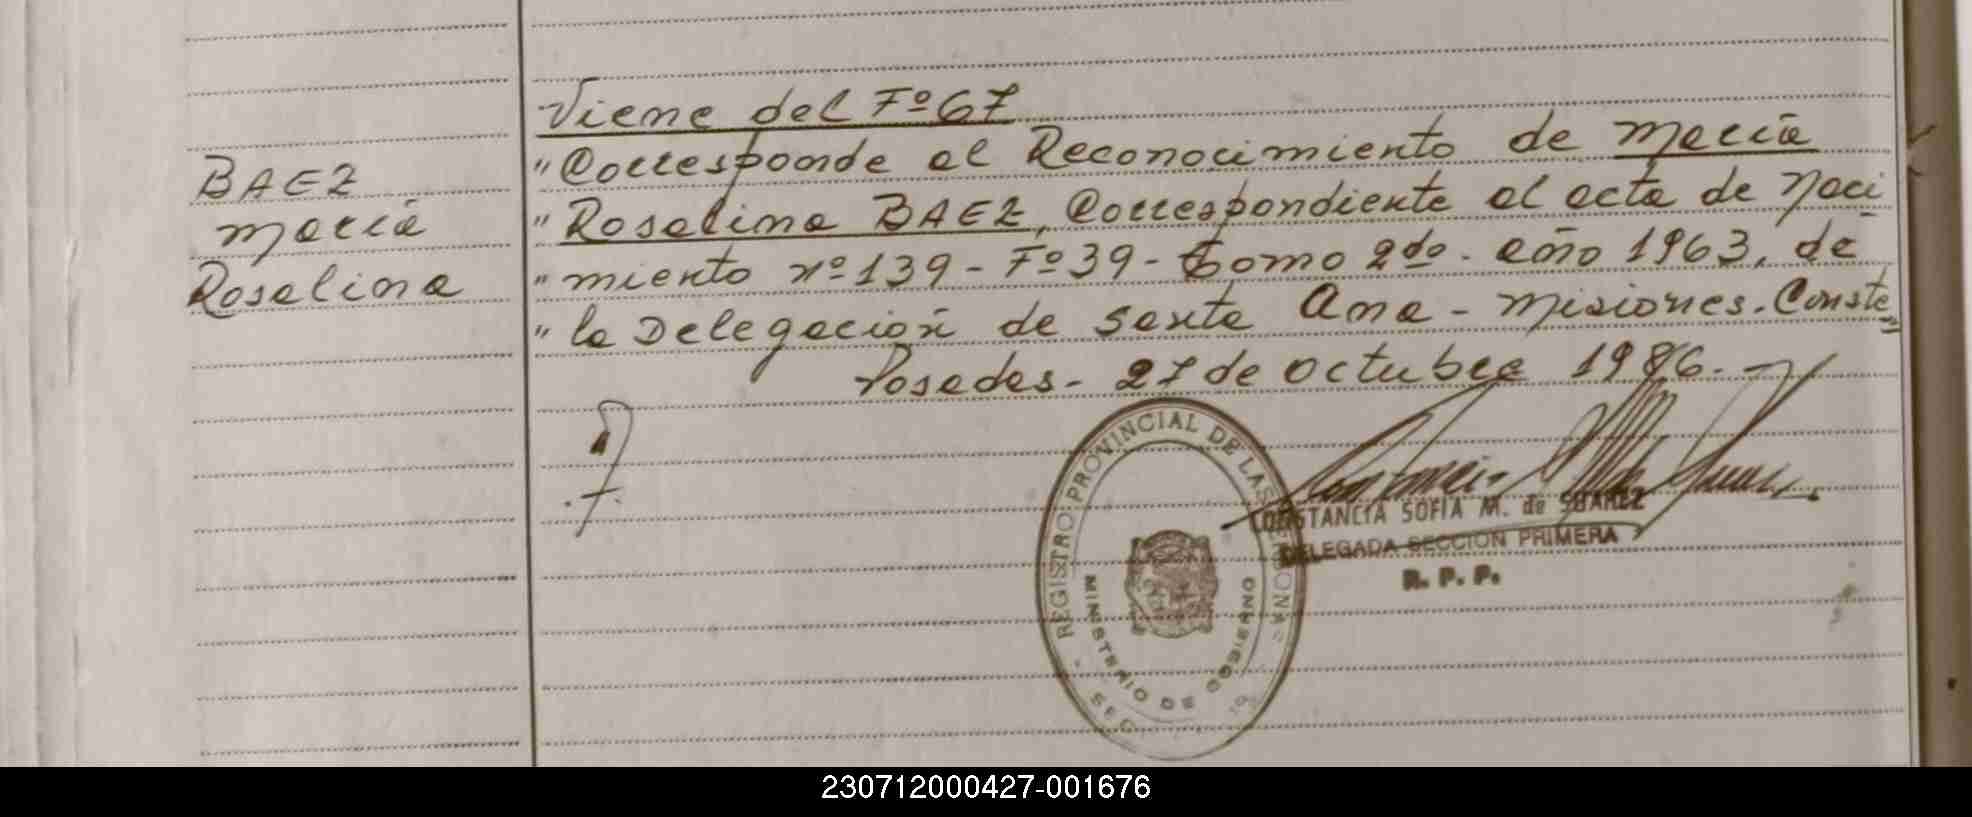 BAEZ
María
Rosalina
Viene del Fº 67
"Corresponde al Reconocimiento de María
"Rosalina BAEZ, Correspondiente al acta de Naci
"miento nº 139 - Fº 39 - Tomo 2do. año 1963, de
"la Delegación de Santa Ana - Misiones. Conste
Posadas - 27 de Octubre 1986.-
REGISTRO PROVINCIAL DE LAS PERSONAS
MINISTERIO DE GOBIERNO
CONSTANCIA SOFIA M. de SUAREZ
DELEGADA SECCION PRIMERA
R. P. P.
230712000427-001676